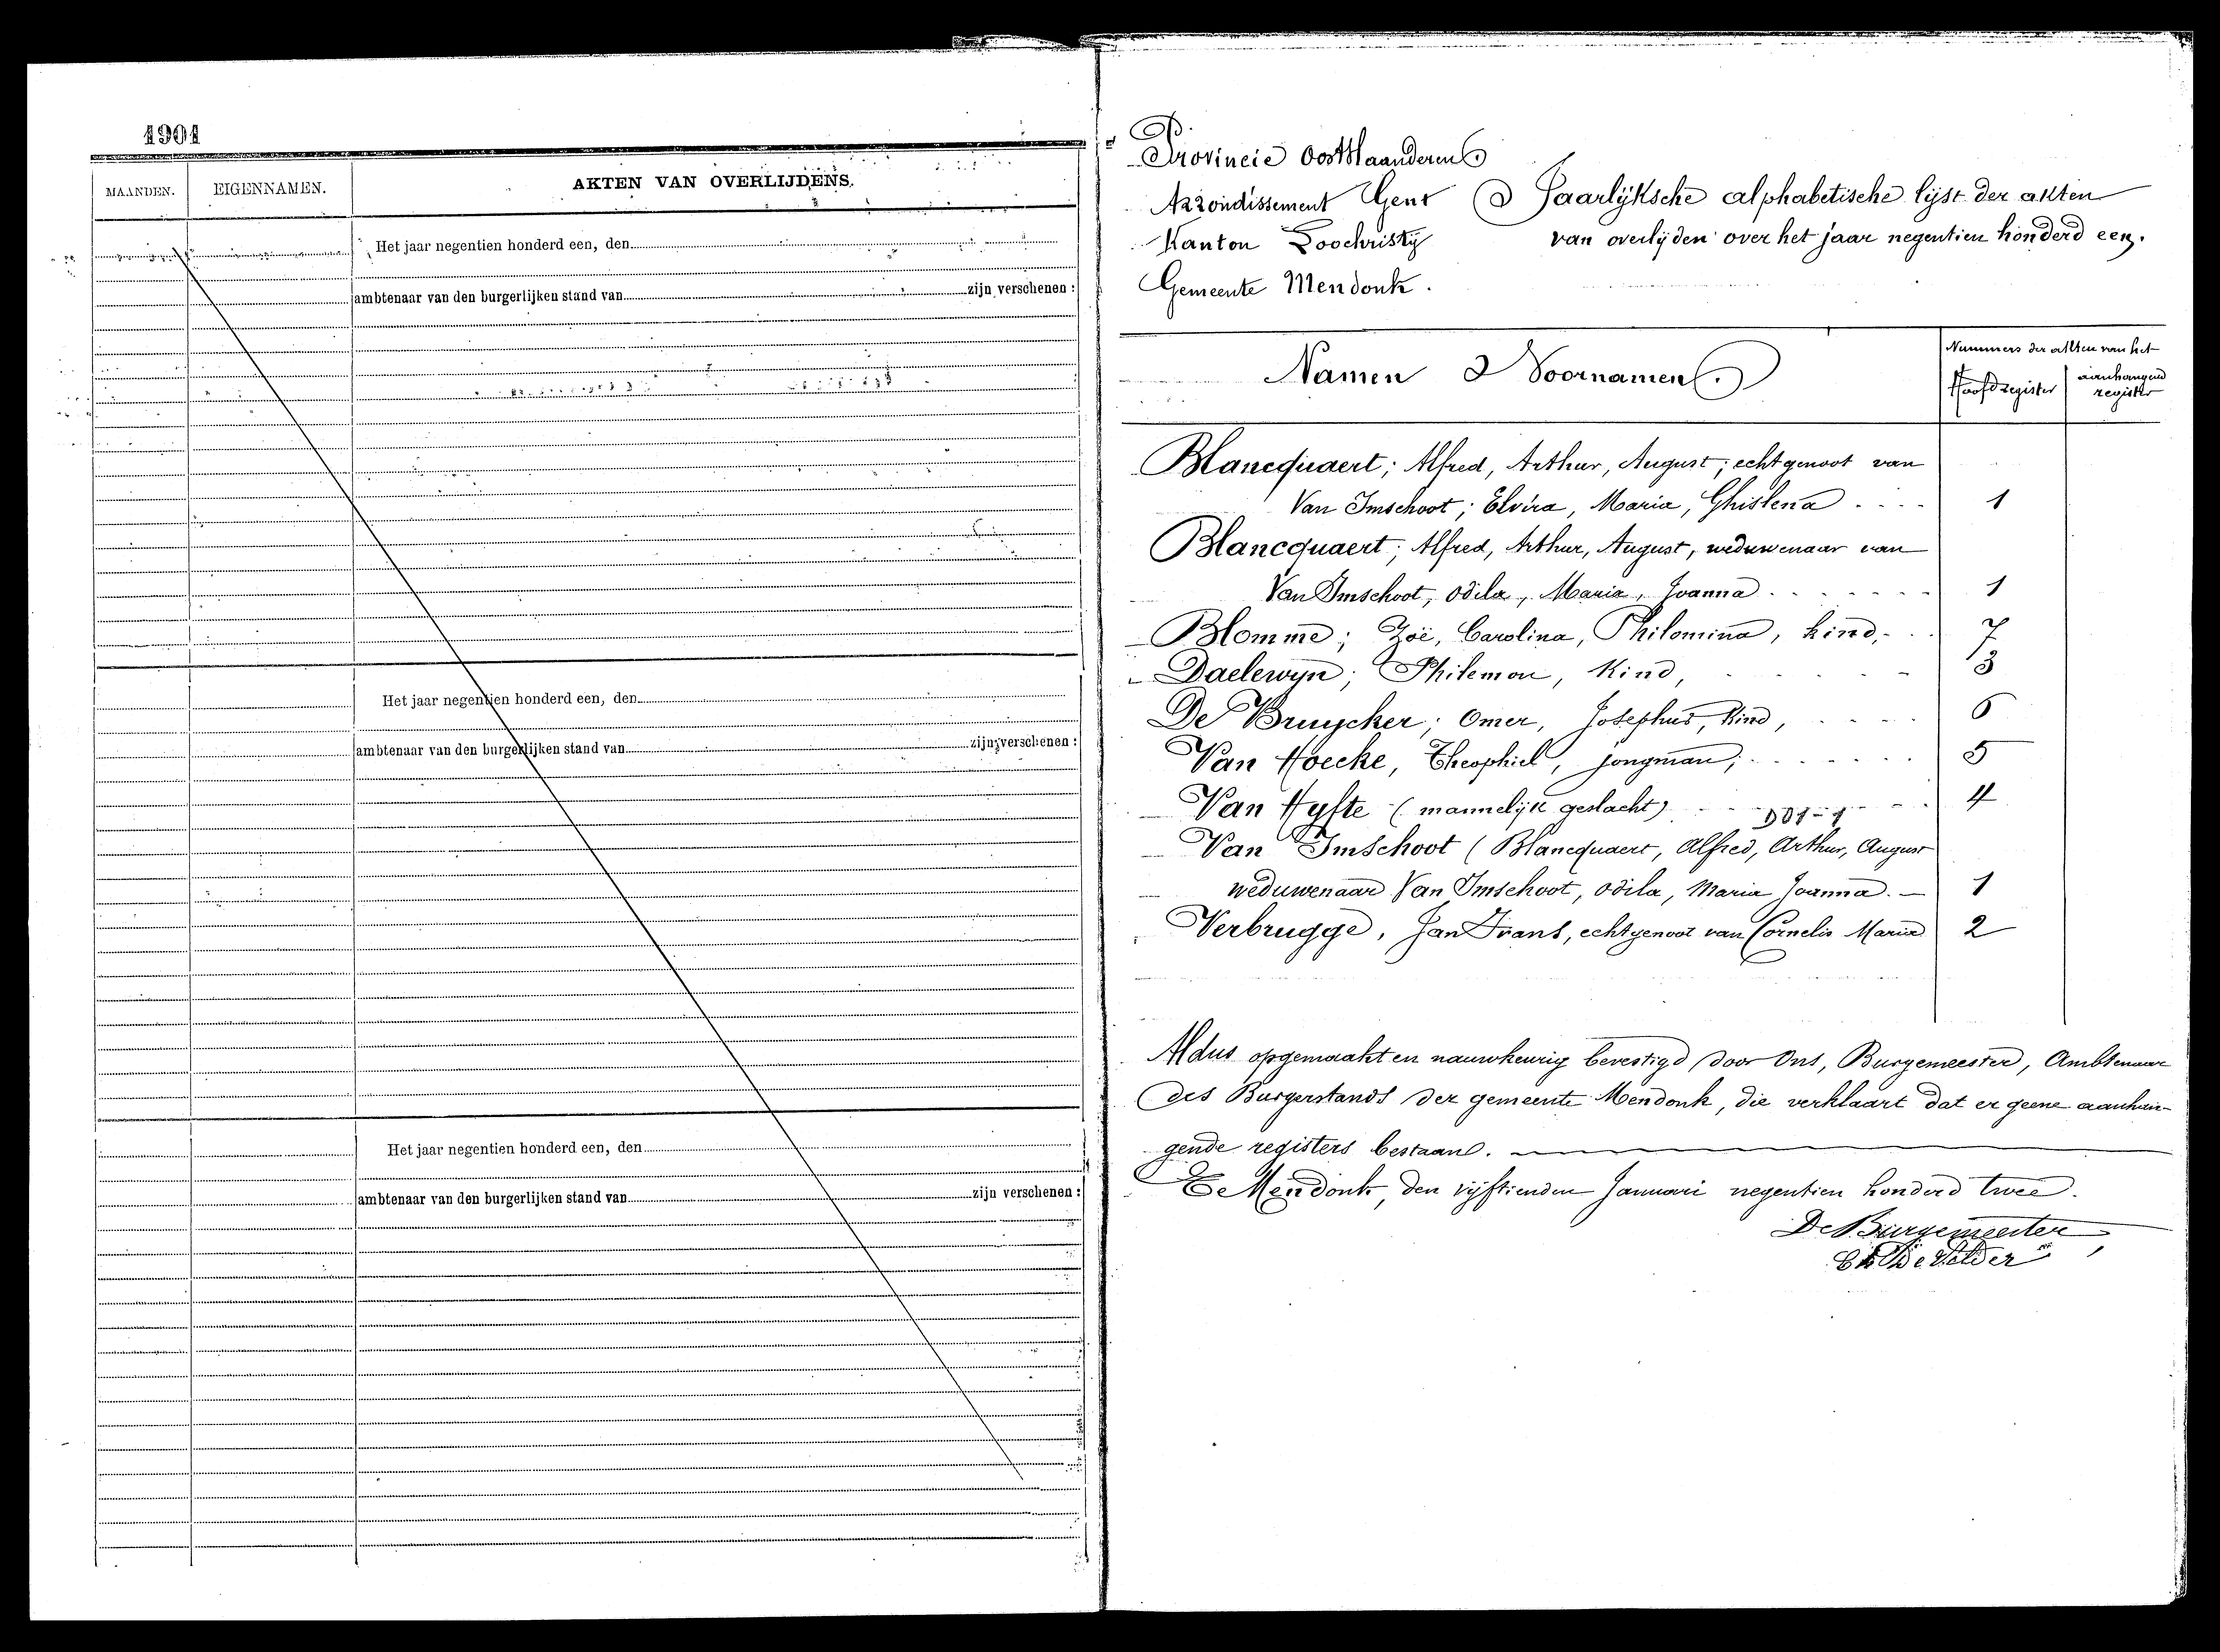 1901
MAANDEN. EIGENNAMEN. AKTEN VAN OVERLIJDENS.
Het jaar negentien honderd een, den
ambtenaar van den burgerlijken stand van zijn verschenen :
Het jaar negentien honderd een, den
ambtenaar van den burgerlijken stand van zijn verschenen :
Het jaar negentien honderd een, den
ambtenaar van den burgerlijken stand van zijn verschenen :
Provincie Oostvlaanderen
Arrondissement Gent
Kanton Loochristy
Gemeente Mendonk.
Jaarlijksche alphabetische lijst der akten
van overlijden over het jaar negentien honderd een.
Namen & Voornamen.
Nummers der akten van het
Hoofdregister aanhangend register
Blancquaert; Alfred, Arthur, August; echtgenoot van
Van Imschoot; Elvira, Maria, Ghislena .... 1
Blancquaert; Alfred, Arthur, August, weduwenaar van
Van Imschoot, Odila, Maria, Joanna ....... 1
Blomme; Zoë, Carolina, Philomina, kind, .. 7
Daelewyn; Philemon, Kind, .... 3
De Bruycker; Omer, Josephus, Kind, .... 6
Van Hoecke, Theophiel, jongman; ....... 5
Van Hyfte (mannelijk geslacht) .... 4
Van Imschoot (Blancquaert, Alfred, Arthur, August
weduwenaar Van Imschoot, Odila, Maria Joanna. — 1
Verbrugge, Jan Frans, echtgenoot van Cornelis Maria 2
Aldus opgemaakt en nauwkeurig bevestigd door Ons, Burgemeester, Ambtenaar
des Burgerstands der gemeente Mendonk, die verklaart dat er geene aanhan-
gende registers bestaan.
Te Mendonk, den vijftienden Januari negentien honderd twee.
De Burgemeester,
De Velder